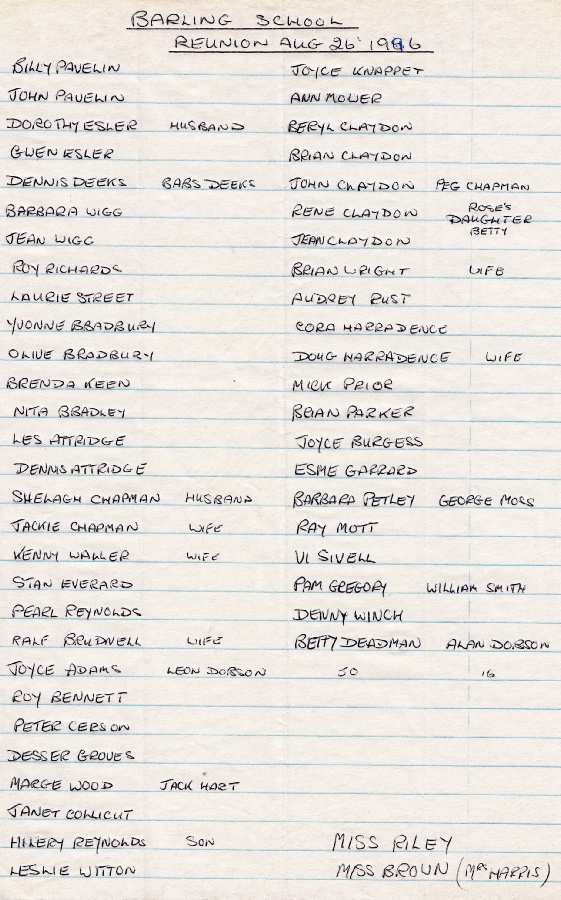 BARLING SCHOOL
REUNION AUG 26' 1996
BILLY PAVELIN JOYCE KNAPPET
JOHN PAVELIN ANN MOWER
DOROTHY ESLER HUSBAND BERYL CLAYDON
GWEN ESLER BRIAN CLAYDON
DENNIS DEEKS BABS DEEKS JOHN CLAYDON PEG CHAPMAN
BARBARA WIGG RENE CLAYDON ROSE'S DAUGHTER BETTY
JEAN WIGG JEAN CLAYDON
ROY RICHARDS BRIAN WRIGHT WIFE
LAURIE STREET AUDREY RUST
YVONNE BRADBURY CORA HARRADENCE
OLIVE BRADBURY DOUG HARRADENCE WIFE
BRENDA KEEN MICK PRIOR
NITA BRADLEY BRIAN PARKER
LES ATTRIDGE JOYCE BURGESS
DENNIS ATTRIDGE ESME GARRARD
SHELAGH CHAPMAN HUSBAND BARBARA PETLEY GEORGE MOSS
JACKIE CHAPMAN WIFE RAY MOTT
KENNY WALLER WIFE VI SIVELL
STAN EVERARD PAM GREGORY WILLIAM SMITH
PEARL REYNOLDS DENNY WINCH
RALF BRUDNELL WIFE BETTY DEADMAN ALAN DOBSON
JOYCE ADAMS LEON DOBSON 50 16
ROY BENNETT
PETER CERSON
DESSER GROVES
MARGE WOOD JACK HART
JANET COLLICUT
HILERY REYNOLDS SON MISS RILEY
LESLIE WITTON MISS BROWN (MRS HARRIS)